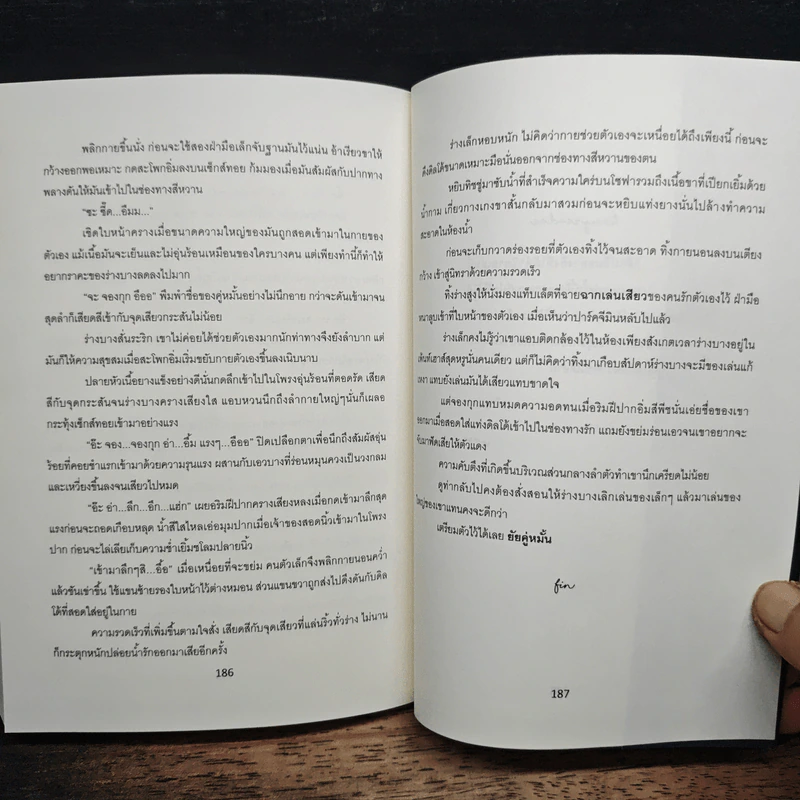 พลิกกายขึ้นนั่ง ก่อนจะใช้สองฝ่ามือเล็กจับฐานมันไว้แน่น อ้าเรียวขาให้
กว้างออกพอเหมาะ กดสะโพกอิ่มลงบนเซ็กส์ทอย ก้มมองเมื่อมันสัมผัสกับปากทาง
พลางดันให้มันเข้าไปในช่องทางสีหวาน
“ซะ ซี้ด...อืมม...”
เชิดใบหน้าครางเมื่อขนาดความใหญ่ของมันถูกสอดเข้ามาในกายของ
ตัวเอง แม้เนื้อมันจะเย็นและไม่อุ่นร้อนเหมือนของใครบางคน แต่เพียงทำนี้ก็ทำให้
อยากราคะของร่างบางลดลงไปมาก
“จะ จองกุก อือออ” พึมพำชื่อของคู่หมั้นอย่างไม่นึกอาย กว่าจะดันเข้ามาจน
สุดลำก็เสียดสีเข้ากับจุดเสียวกระสันไม่น้อย
ร่างบางสั่นระริก เขาไม่ค่อยได้ช่วยตัวเองมากนักท่าทางจึงยังลำบาก แต่
มันก็ให้ความสุขสมเมื่อสะโพกอิ่มเริ่มขยับกายตัวเองขึ้นลงเนิบนาบ
ปลายหัวเนื้อยางแข็งอย่างดีนั่นกดลึกเข้าไปในโพรงอุ่นร้อนที่ตอดรัด เสียด
สีกับจุดกระสันจนร่างบางครางเสียงใส แอบหวนนึกถึงลำกายใหญ่ๆนั่นก็เผลอ
กระทุ้งเซ็กส์ทอยเข้ามาอย่างแรง
“อ๊ะ จอง...จองกุก อ่า...อื้ม แรงๆ...อืออ” ปิดเปลือกตาเพื่อนึกถึงสัมผัสอุ่น
ร้อนที่คอยชำแรกเข้ามาด้วยความรุนแรง ผสานกับเอวบางที่ร่อนหมุนควงเป็นวงกลม
และเหวี่ยงขึ้นลงจนเสียวไปหมด
“อ๊ะ อ่า...ลึก...อึก...แฮ่ก” เผยอริมฝีปากครางเสียงหลงเมื่อกดเข้ามาลึกสุด
แรงก่อนจะถอดเกือบหลุด น้ำสีใสไหลเอ่อมุมปากเมื่อเจ้าของสอดนิ้วเข้ามาในโพรง
ปาก ก่อนจะไล่เลียเก็บความช่ำเยิ้มชโลมปลายนิ้ว
“เข้ามาลึกๆสิ...อื้อ” เมื่อเหนื่อยที่จะขย่ม คนตัวเล็กจึงพลิกกายนอนคว่ำ
แล้วชันเข่าขึ้น ใช้แขนซ้ายรองใบหน้าไว้ต่างหมอน ส่วนแขนขวาถูกส่งไปดึงดันกับดิล
โด้ที่สอดใส่อยู่ในกาย
ความรวดเร็วที่เพิ่มขึ้นตามใจสั่ง เสียดสีกับจุดเสียวที่แล่นริ้วทั่วร่าง ไม่นาน
ก็กระตุกหนักปล่อยน้ำรักออกมาเสียอีกครั้ง
186
ร่างเล็กหอบหนัก ไม่คิดว่ากายช่วยตัวเองจะเหนื่อยได้ถึงเพียงนี้ ก่อนจะ
ดึงดิลโด้ขนาดเหมาะมือนั่นออกจากช่องทางสีหวานของตน
หยิบทิชชู่มาซับน้ำที่สำเร็จความใคร่บนโซฟารวมถึงเนื้อขาที่เปียกเยิ้มด้วย
น้ำกาม เกี่ยวกางเกงขาสั้นกลับมาสวมก่อนจะหยิบแท่งยางนั่นไปล้างทำความ
สะอาดในห้องน้ำ
ก่อนจะเก็บกวาดร่องรอยที่ตัวเองทิ้งไว้จนสะอาด ทิ้งกายนอนลงบนเตียง
กว้าง เข้าสู่นิทราด้วยความรวดเร็ว
ทิ้งร่างสูงให้นั่งมองแท็บเล็ตที่ฉายฉากเล่นเสียวของคนรักตัวเองไว้ ฝ่ามือ
หนาลูบเข้าที่ใบหน้าของตัวเอง เมื่อเห็นว่าปาร์คจีมินหลับไปแล้ว
ร่างเล็กคงไม่รู้ว่าเขาแอบติดกล้องไว้ในห้องเพียงสังเกตเวลาร่างบางอยู่ใน
เพ้นท์เฮาส์สุดหรูนั่นคนเดียว แต่ก็ไม่คิดว่าทิ้งมาเกือบสัปดาห์ร่างบางจะมีของเล่นแก้
เหงา แทบยังเล่นมันได้เสียวแทบขาดใจ
แต่จองกุกแทบหมดความอดทนเมื่อริมฝีปากอิ่มสีพีชนั่นเอ่ยชื่อของเขา
ออกมาเมื่อสอดใส่แท่งดิลโด้เข้าไปในช่องทางรัก แถมยังขย่มร่อนเอวจนเขาอยากจะ
จับมาฟัดเสียให้ตัวแดง
ความคับตึงที่เกิดขึ้นบริเวณส่วนกลางลำตัวทำเขานึกเครียดไม่น้อย
ดูท่ากลับไปคงต้องสั่งสอนให้ร่างบางเลิกเล่นของเล็กๆ แล้วมาเล่นของ
ใหญ่ของเขาแทนคงจะดีกว่า
เตรียมตัวไว้ได้เลย ยัยคู่หมั้น
fin
187